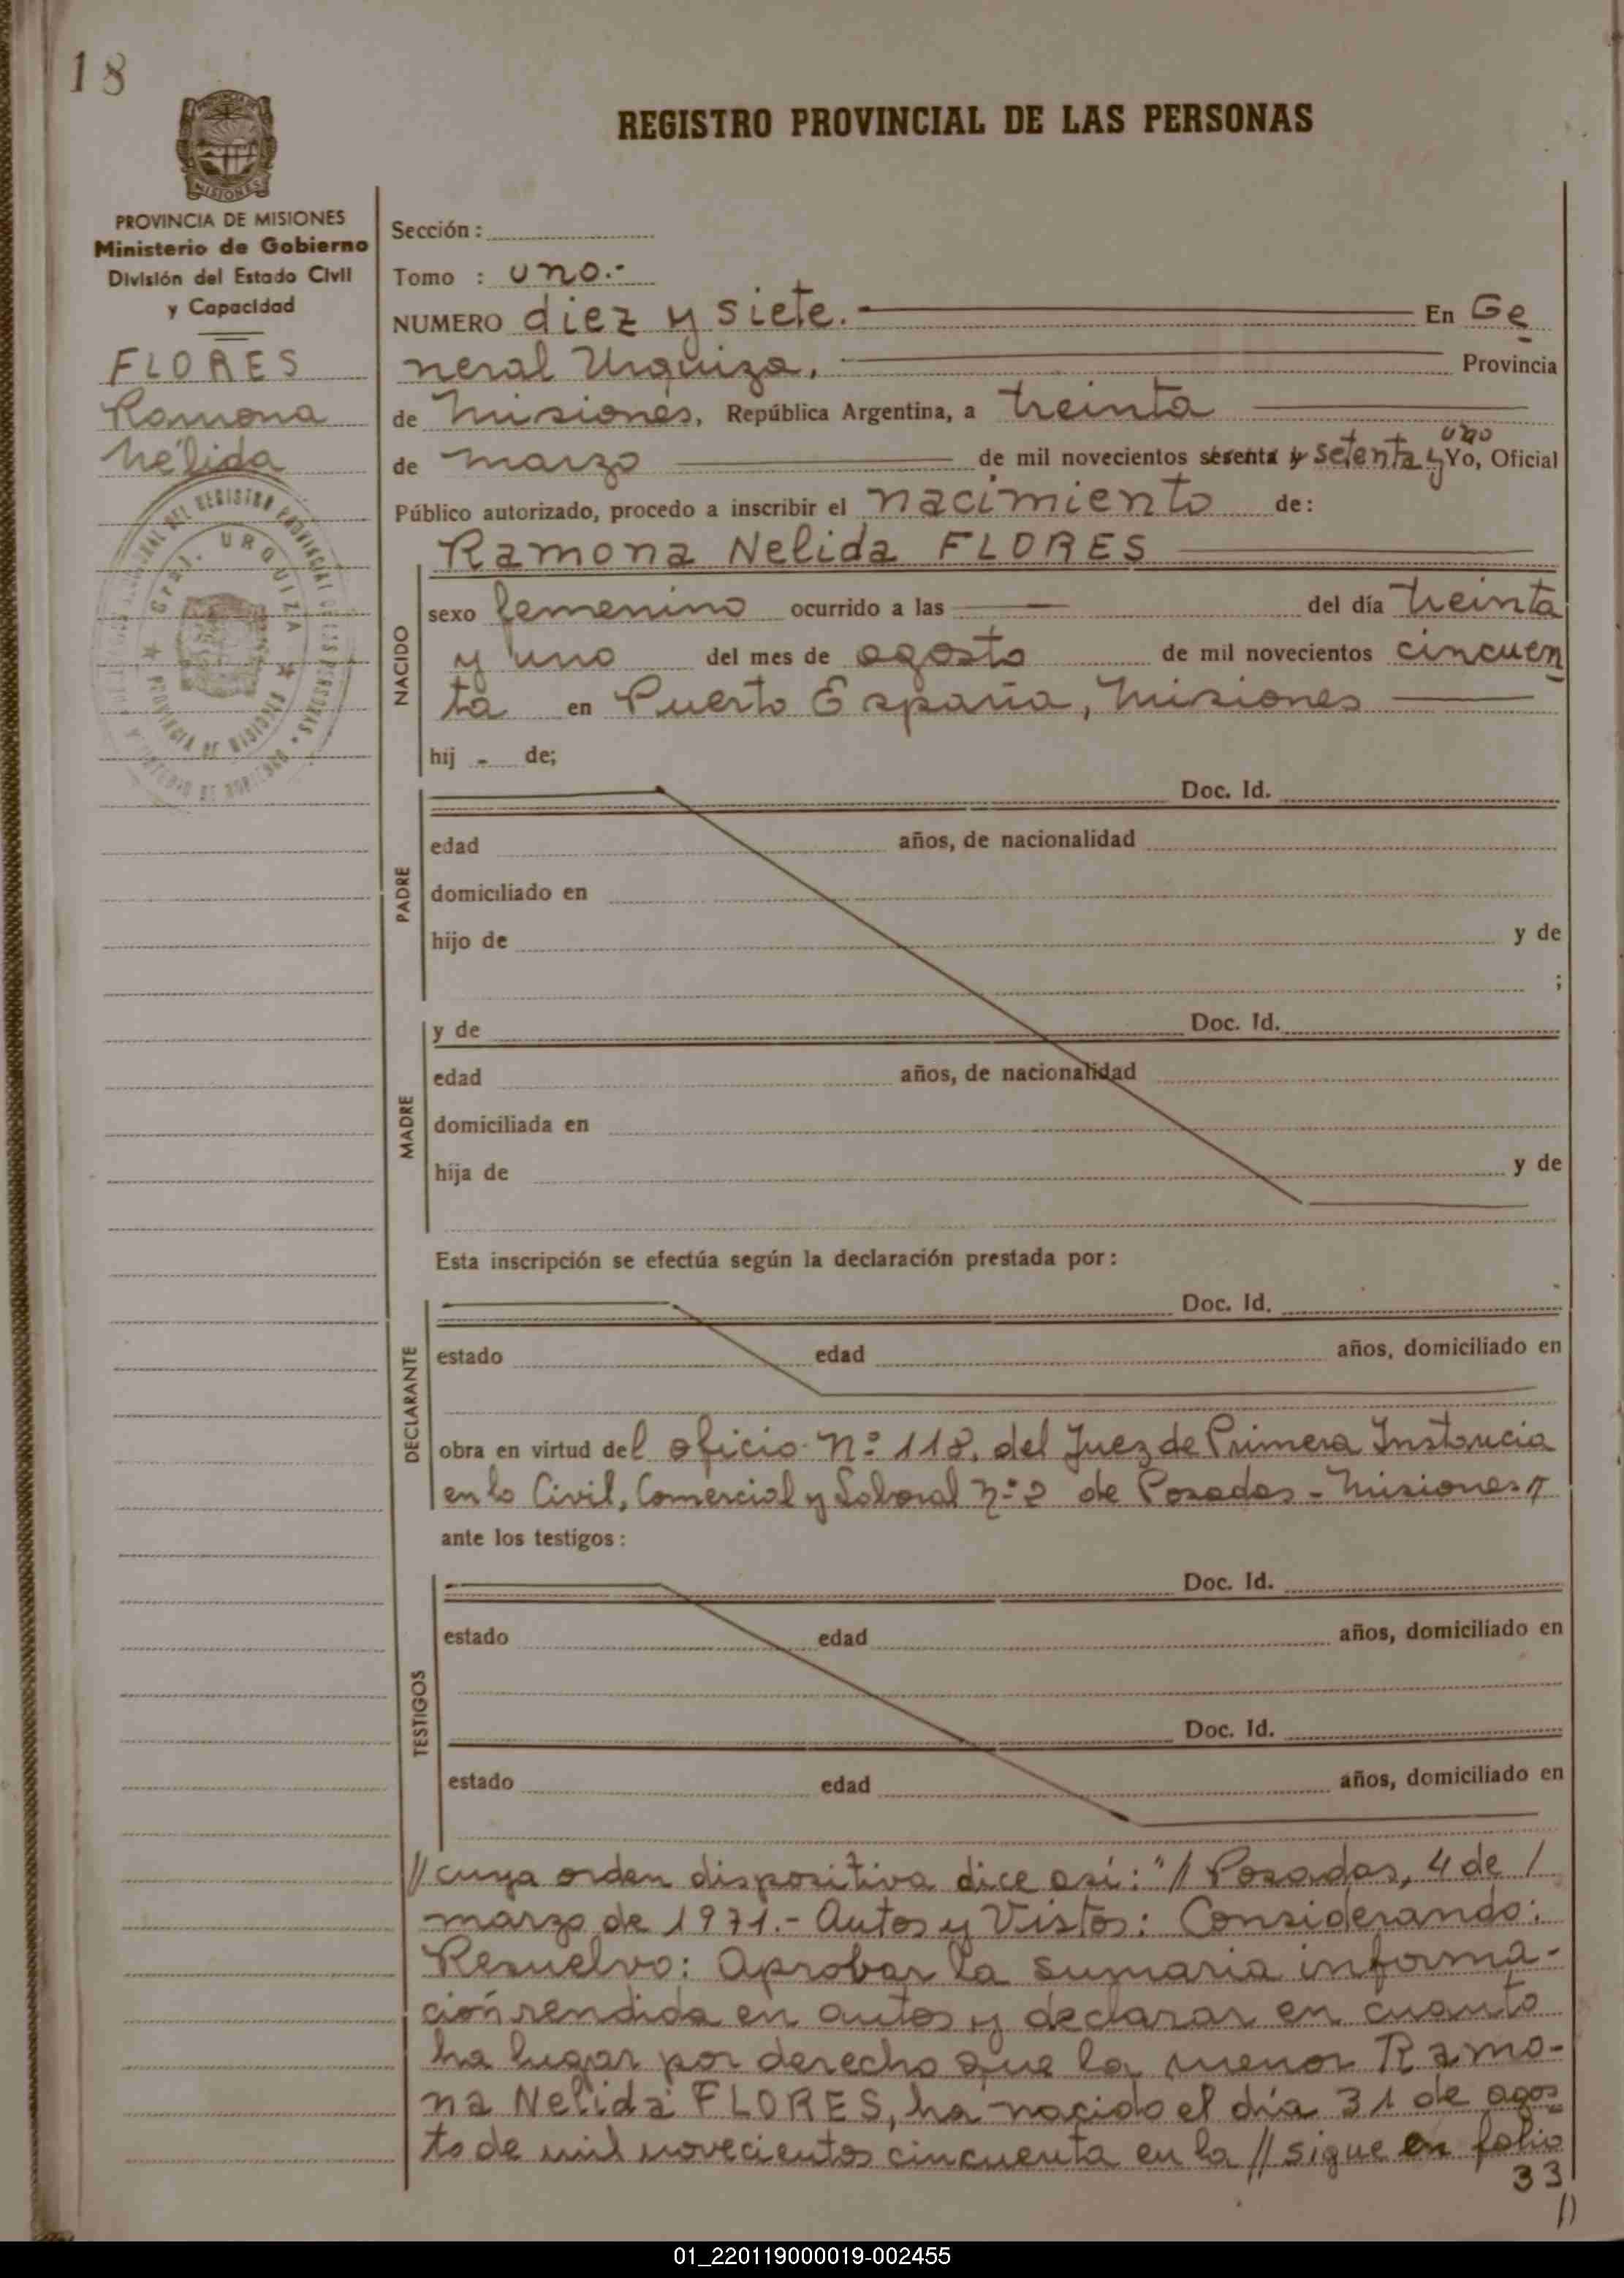 18
REGISTRO PROVINCIAL DE LAS PERSONAS
MISIONES
PROVINCIA DE MISIONES
Ministerio de Gobierno
División del Estado Civil
y Capacidad
FLORES
Ramona
Nélida
GRAL. URQUIZA
PROVINCIA DE MISIONES
Sección :
Tomo : uno.-
NUMERO diez y siete. En Ge
neral Urquiza, Provincia
de Misiones, República Argentina, a treinta
de marzo de mil novecientos sesenta y setenta y uno Yo, Oficial
Público autorizado, procedo a inscribir el nacimiento de:
Ramona Nelida FLORES
NACIDO
sexo femenino ocurrido a las — del día treinta
y uno del mes de agosto de mil novecientos cincuen
ta en Puerto España, Misiones
hij - de;
PADRE
Doc. Id.
edad años, de nacionalidad
domiciliado en
hijo de y de
;
MADRE
y de Doc. Id.
edad años, de nacionalidad
domiciliada en
hija de y de
Esta inscripción se efectúa según la declaración prestada por :
DECLARANTE
Doc. Id.
estado edad años, domiciliado en
obra en virtud del oficio Nº 118, del Juez de Primera Instancia
en lo Civil, Comercial y Laboral Nº 2 de Posadas - Misiones //
ante los testigos :
TESTIGOS
Doc. Id.
estado edad años, domiciliado en
Doc. Id.
estado edad años, domiciliado en
// cuya orden dispositiva dice así: "// Posadas, 4 de /
marzo de 1971.- Autos y Vistos: Considerando:
Resuelvo: Aprobar la sumaria informa-
ción rendida en autos y declarar en cuanto
ha lugar por derecho que la menor Ramo-
na Nelida FLORES, ha nacido el día 31 de agos
to de mil novecientos cincuenta en la // sigue en folio
33
//
01_220119000019-002455